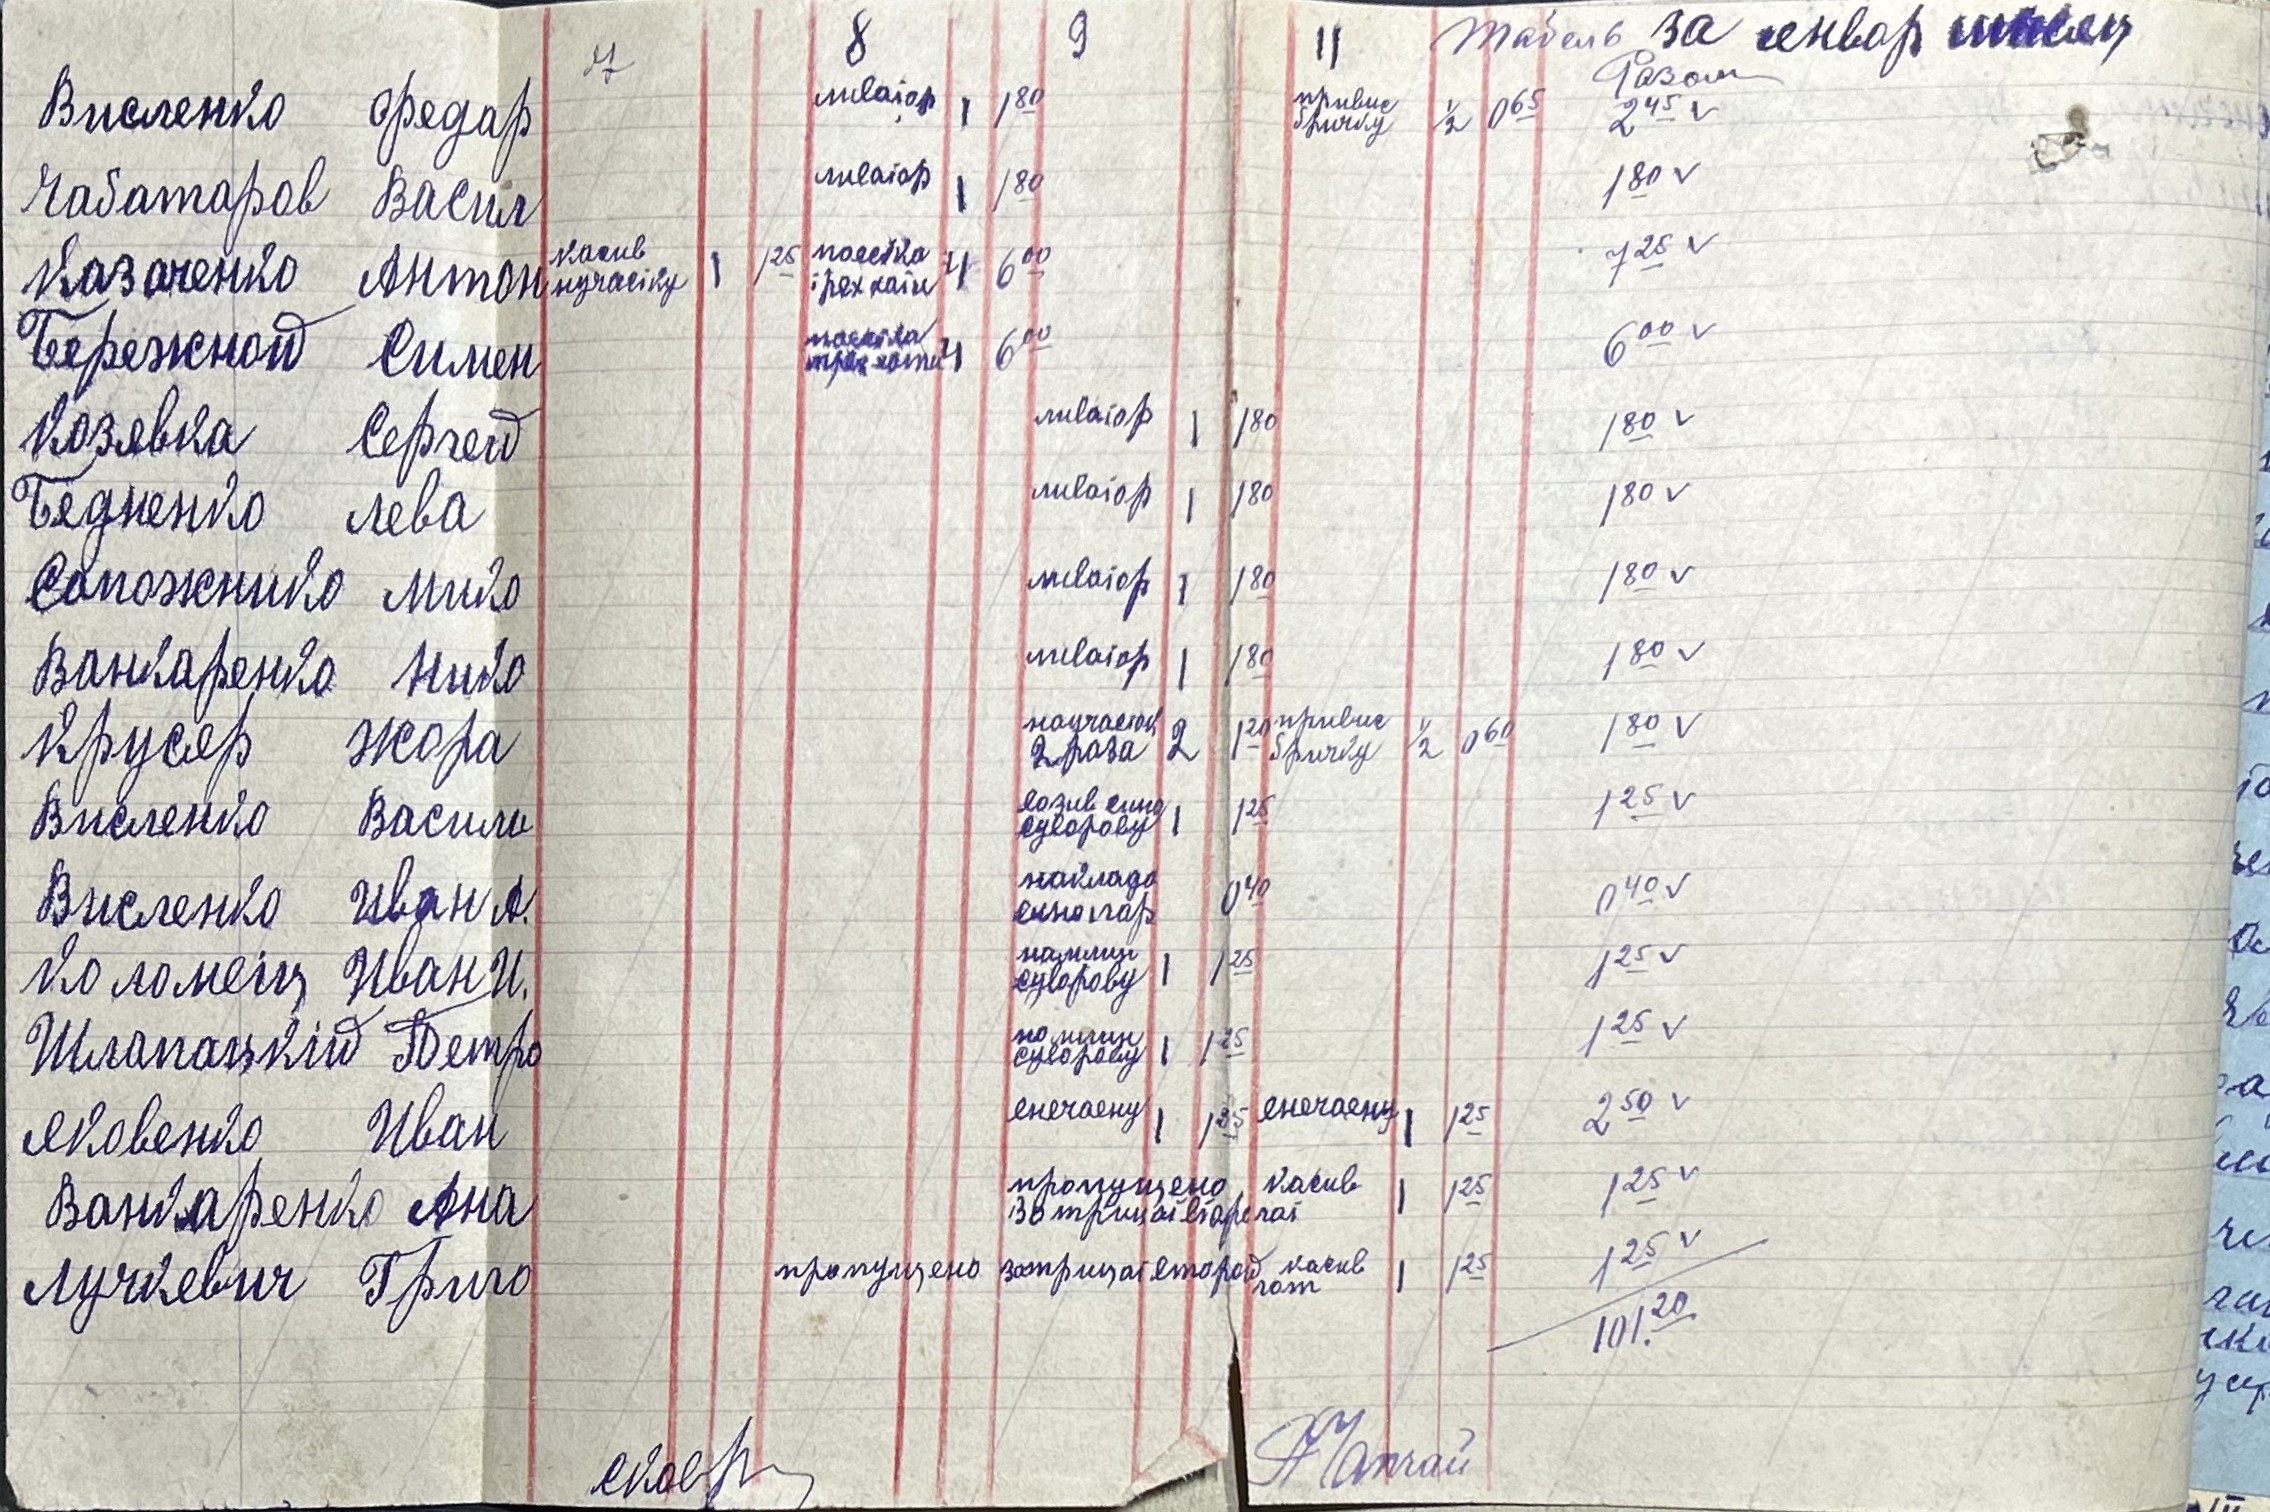 7 8 9 11 Табель за енвар
Разом
Висленко Федар миліор 1 1 80 привис бричку 1/2 0 65 2 45 v
Чабатаров Васил миліор 1 1 80 1 80 v
Казаченко Антон касив нучасіку 1 1 25 поестка 4 6 00 7 25 v
Бережной Симен поестка 4 6 00 6 00 v
Козявка Сергей миліор 1 1 80 1 80 v
Бедненко лева миліор 1 1 80 1 80 v
Сапожнико мико миліор 1 1 80 1 80 v
Ванкаренко Нико миліор 1 1 80 1 80 v
Крусяр Жора научасток 2 раза 2 1 20 привис бричку 1/2 0 60 1 80 v
Висленко Василь возив сино суворову 1 1 25 1 25 v
Висленко Иван А. наклада 0 40 0 40 v
Коломеіц Иван И. суворову 1 1 25 1 25 v
Шлапацкій Петро суворову 1 1 25 1 25 v
Яковенко Иван енечаену 1 1 25 енечаену 1 1 25 2 50 v
Ванкаренко Ана пропущено касив 1 1 25 1 25 v
Лучкевич Григо пропущено касив 1 1 25 1 25 v
101.20